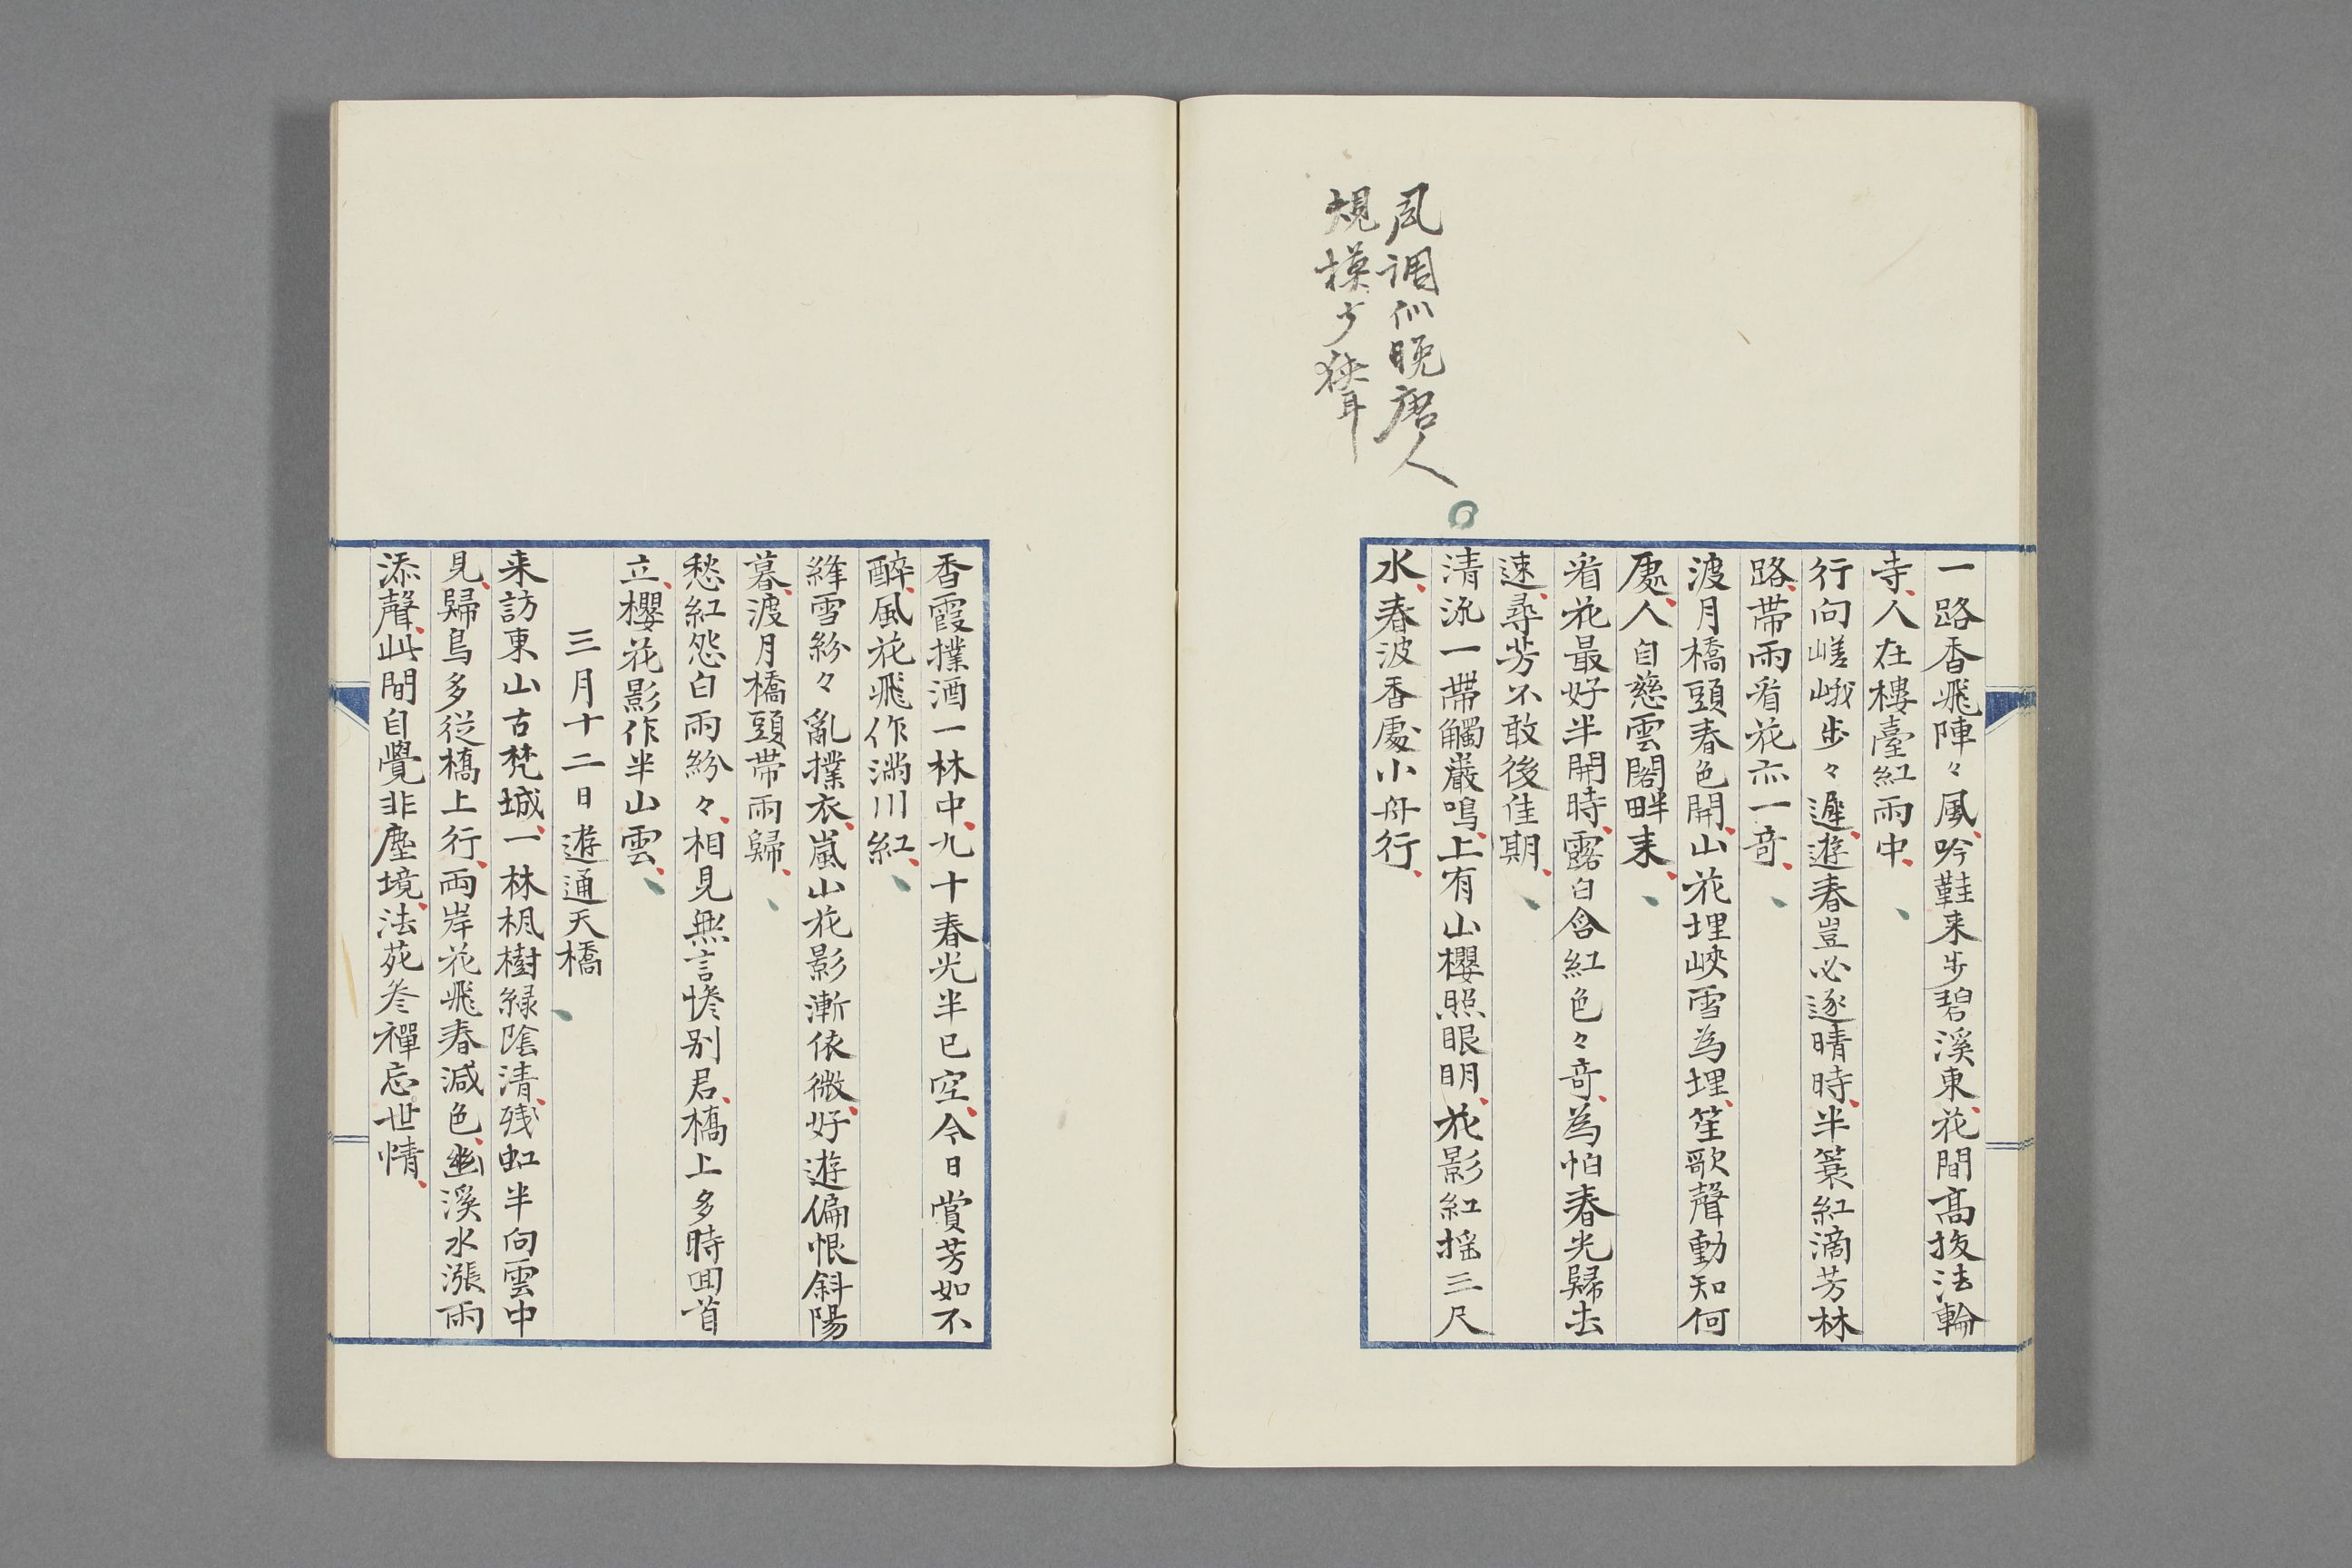 風調似晚唐人
規模少狹耳
一路香飛陣々風吟鞋来步碧溪東花間髙抜法輪
寺人在樓臺紅雨中
行向嵯峨步々遲遊春豈必逐晴時半簑紅滴芳林
路帶雨㸔花亦一竒
渡月橋頭春色開山花埋峽雪為埋笙歌聲動知何
處人自慈雲閣畔来
㸔花最好半開時露白含紅色々竒為怕春光歸去
速尋芳不敢後佳期
清流一帶觸巖鳴上有山櫻照眼明花影紅揺三尺
水春波香處小舟行
香霞撲酒一林中九十春光半已空今日賞芳如不
醉風花飛作滿川紅
絳雪紛々亂撲衣嵐山花影漸依微好遊偏恨斜陽
暮渡月橋頭帶雨歸
愁紅怨白雨紛々相見無言惨别君橋上多時囬首
立櫻花影作半山雲
三月十二日遊通天橋
来訪東山古梵城一林楓樹緑陰清残虹半向雲中
見歸鳥多從橋上行両岸花飛春減色幽溪水漲雨
添聲此間自覺非塵境法苑叅禪忘世情